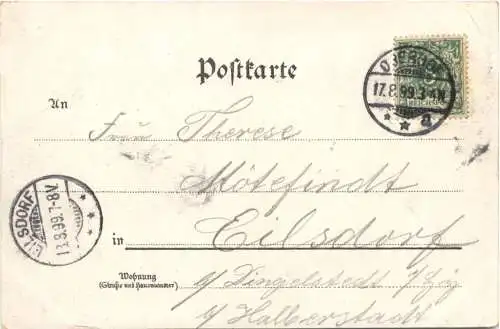 Postkarte
17.8.99.3-4N
a
An
Frau Therese
Mötefindt
EILSDORF
7-8V
in Eilsdorf
Wohnung
(Straße und Hausnummer)
b/ Dingelstedt
b/ Halberstadt